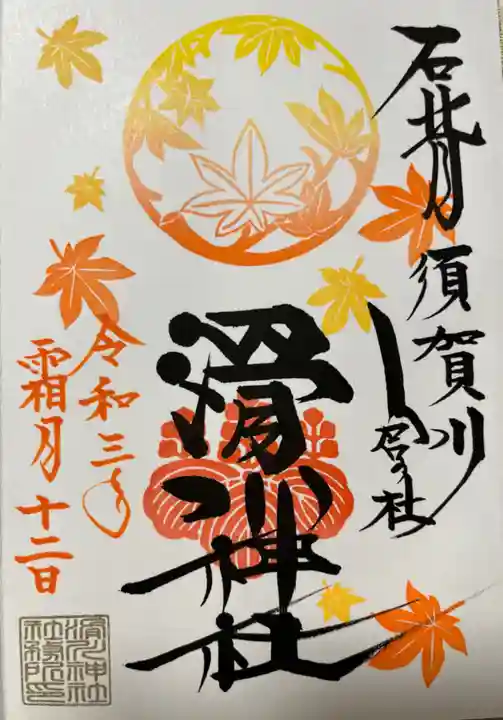 石背 須賀川
滑川神社
令和三年
霜月十二日
滑川神社
社務所印